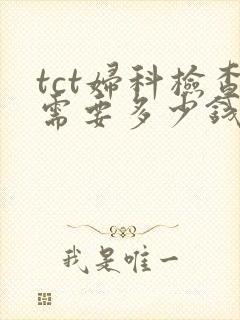 tct婦科檢查
需要多少錢
我是唯一